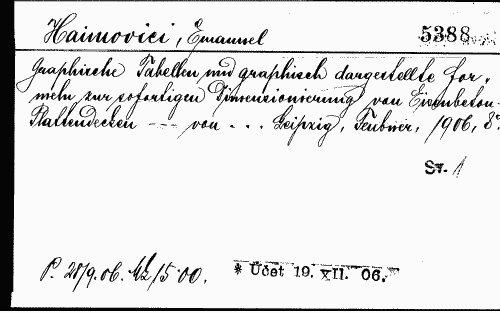 Haimovici, Emanuel 5388
Graphische Tabellen und graphisch dargestellte For-
meln zur sofortigen Dimensionierung von Eisenbeton-
Plattendecken --- von ... Leipzig, Teubner, 1906, 8°.
Sv. 1
P. 28/9.06. 5.00.
* Účet 19. XII. 06.